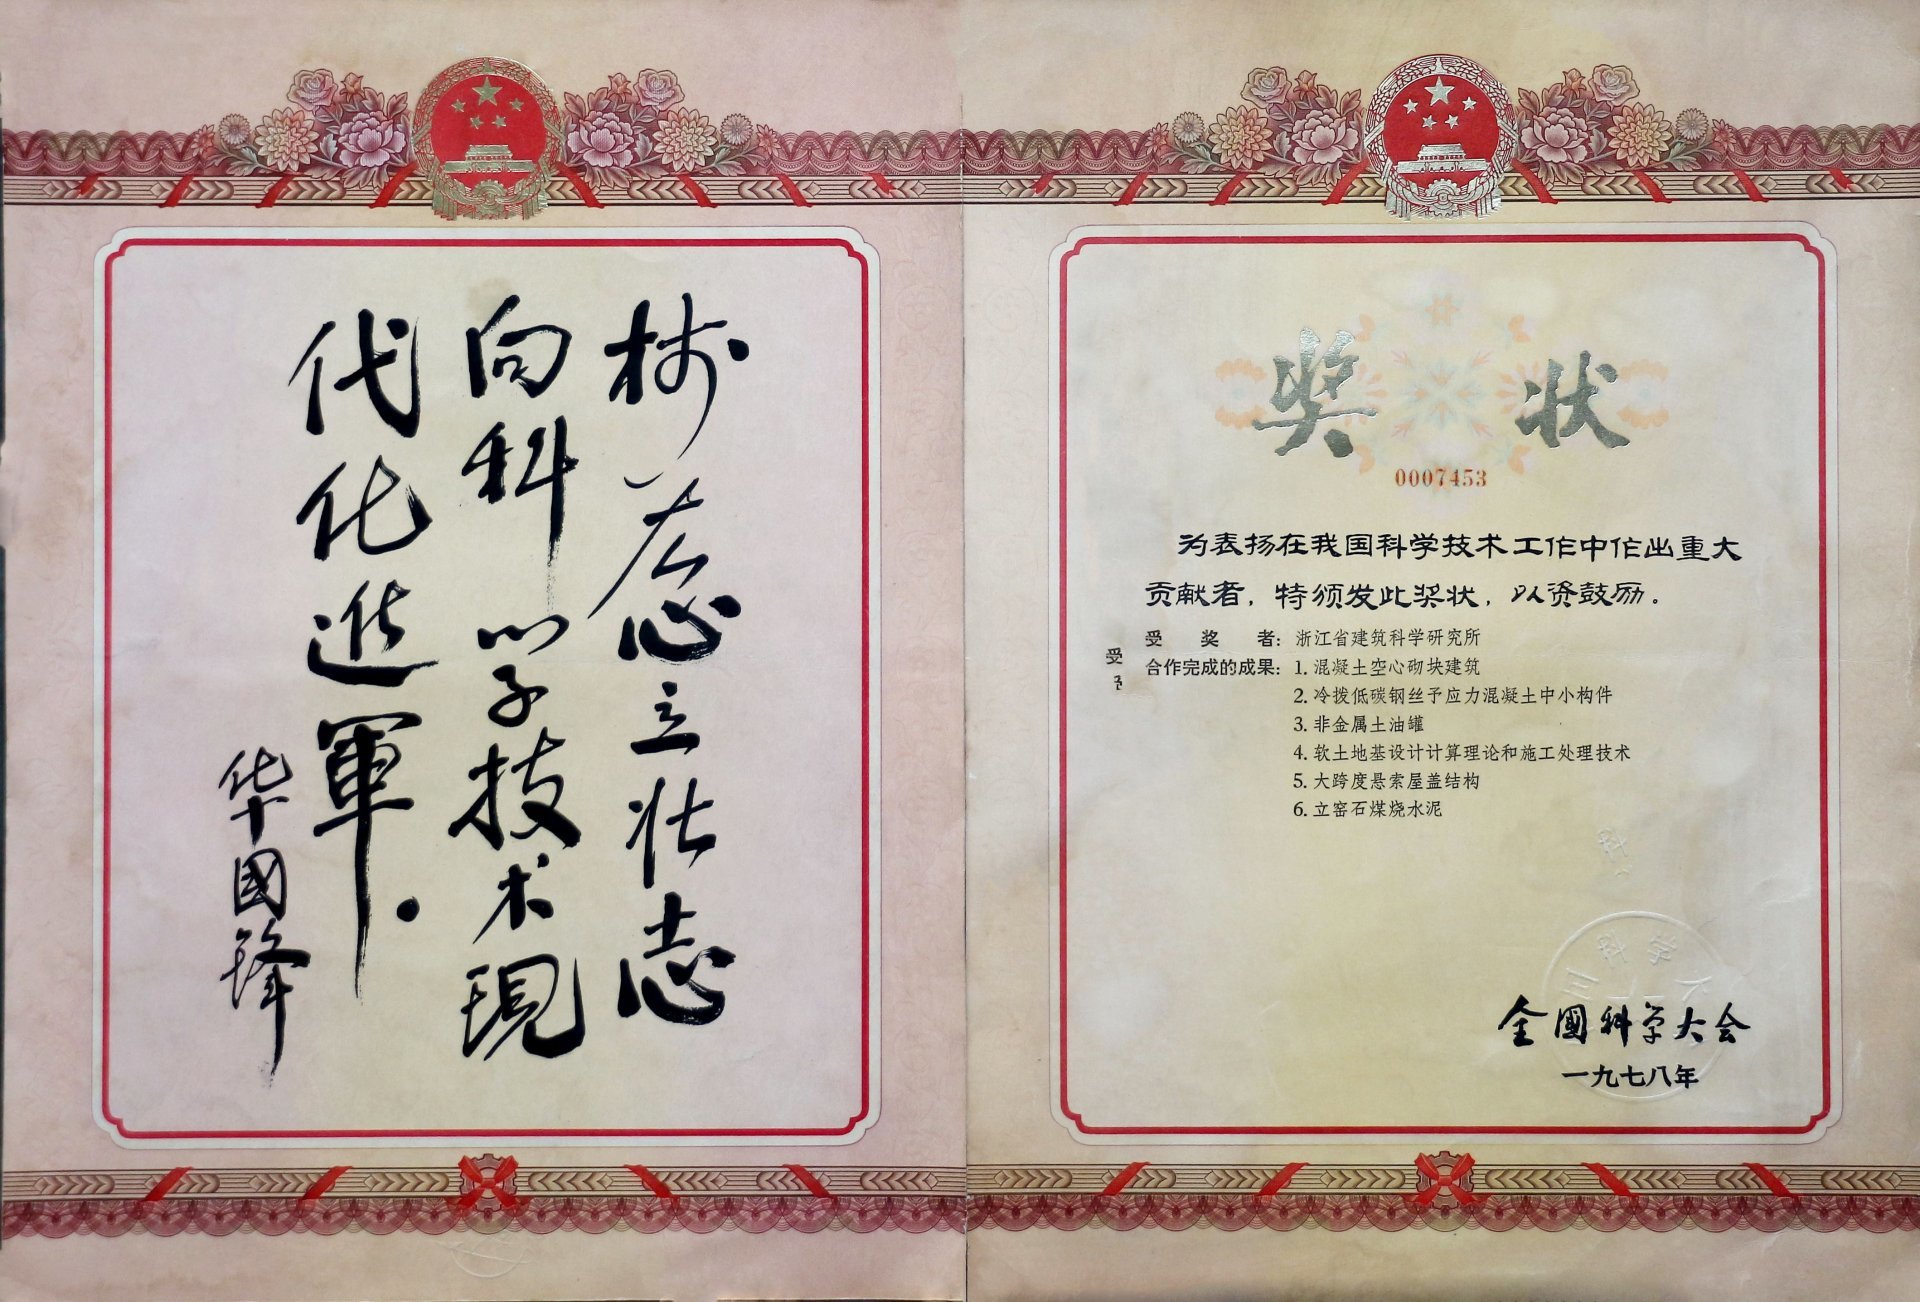 树雄心立壮志
向科学技术现
代化進軍.
华國鋒
奖状
0007453
为表扬在我国科学技术工作中作出重大
贡献者，特颁发此奖状，以资鼓励.
受
受奖者：浙江省建筑科学研究所
合作完成的成果：1. 混凝土空心砌块建筑
2. 冷拨低碳钢丝予应力混凝土中小构件
3. 非金属土油罐
4. 软土地基设计计算理论和施工处理技术
5. 大跨度悬索屋盖结构
6. 立窑石煤烧水泥
全國科学大会
一九七八年